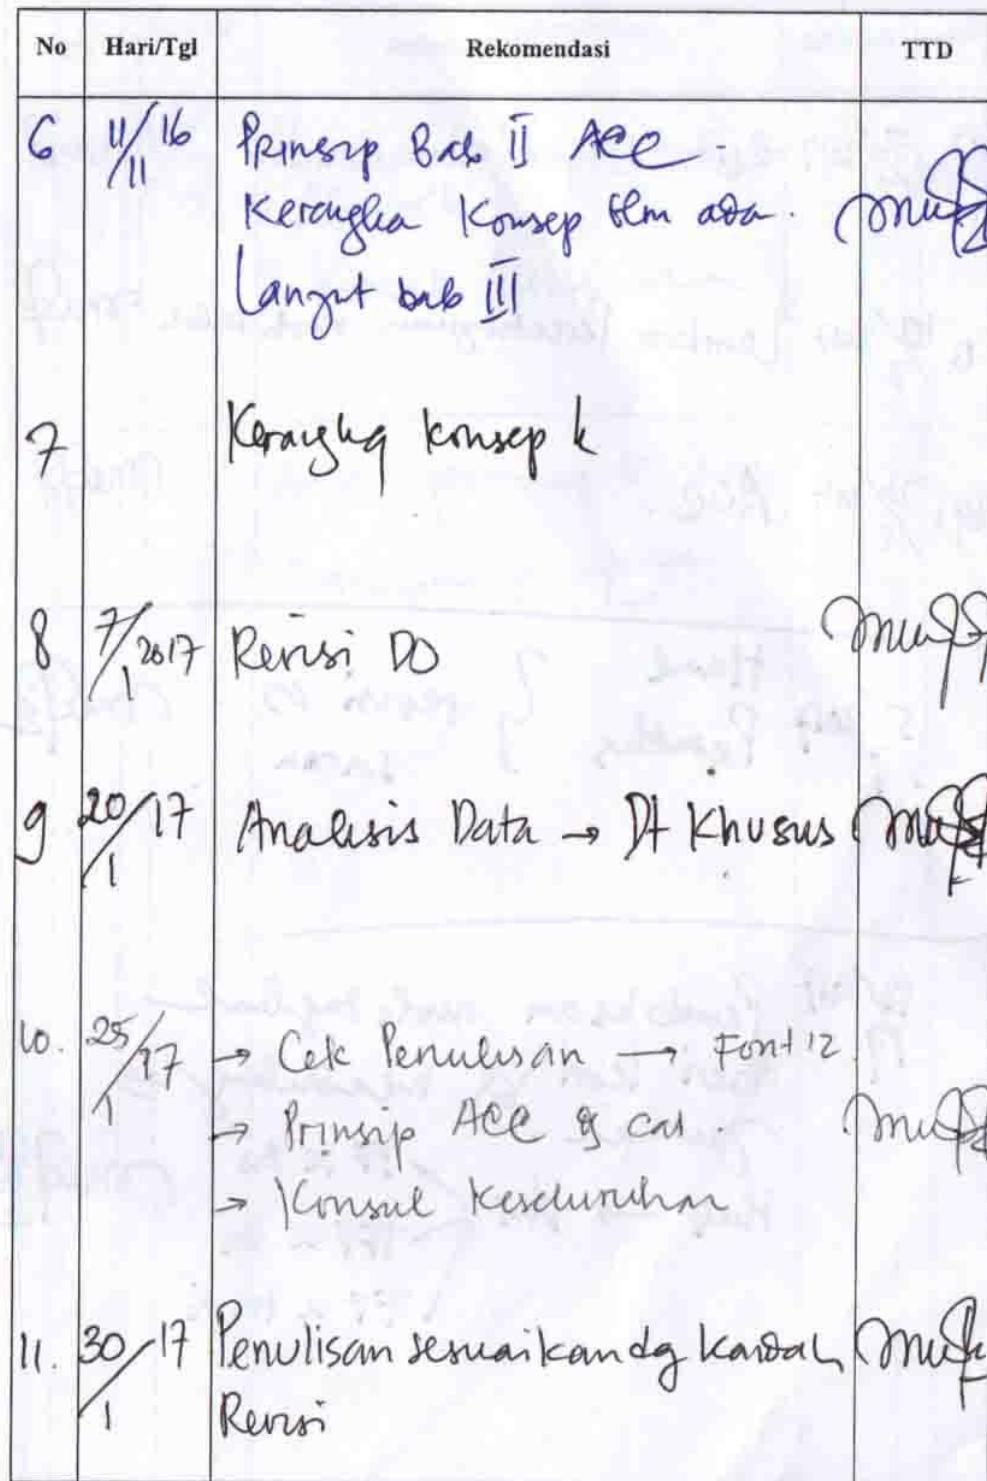 No Hari/Tgl Rekomendasi TTD
6 11/11 16 Prinsip Bab II ACC.
Kerangka Konsep blm ada.
Lanjut bab III
7 Kerangka konsep k
8 7/1 2017 Revisi DO
9 20/1 17 Analisis Data → Dt Khusus
10. 25/1 17 → Cek Penulisan → Font 12
→ Prinsip ACC dg cat.
→ Konsul Keseluruhan
11. 30/1 17 Penulisan sesuaikan dg kaidah
Revisi